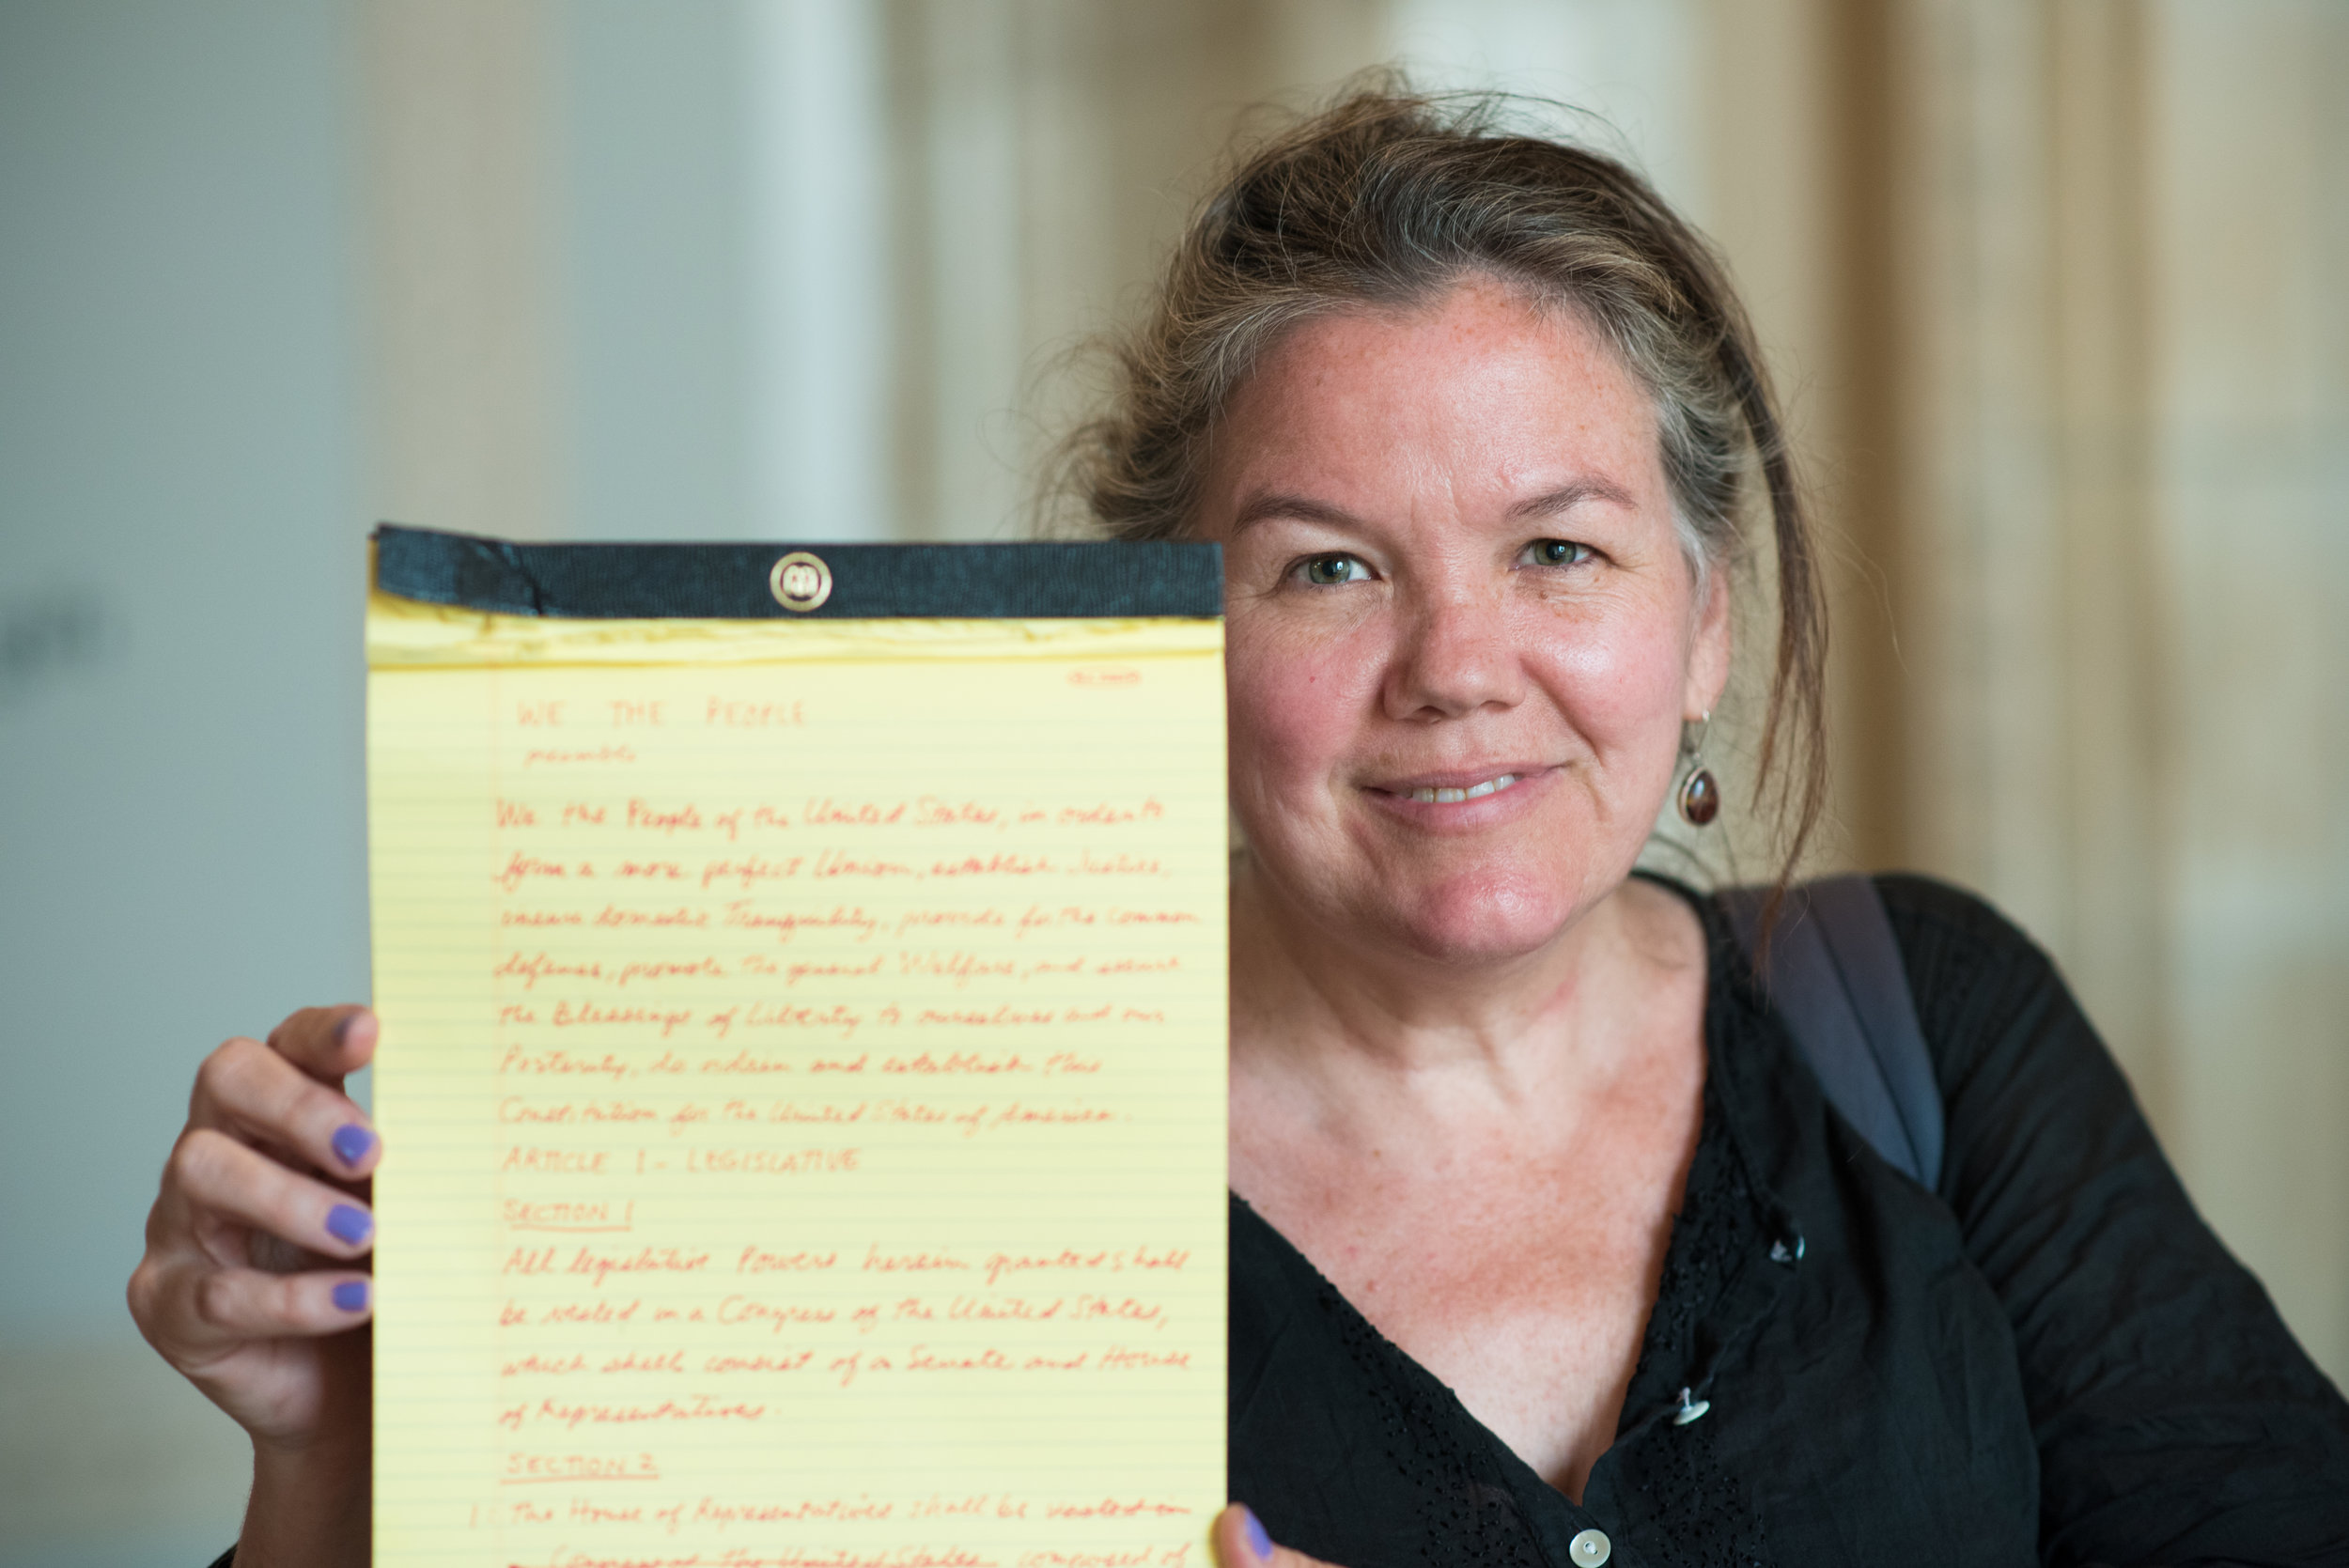 WE THE PEOPLE
preamble
We the People of the United States, in order to
form a more perfect Union, establish Justice,
insure domestic Tranquility, provide for the common
defense, promote the general Welfare, and secure
the Blessings of Liberty to ourselves and our
Posterity, do ordain and establish this
Constitution for the United States of America.
ARTICLE 1 - LEGISLATIVE
SECTION 1
All legislative Powers herein granted shall
be vested in a Congress of the United States,
which shall consist of a Senate and House
of Representatives.
SECTION 2
1. The House of Representatives shall be
Congress of the United States composed of